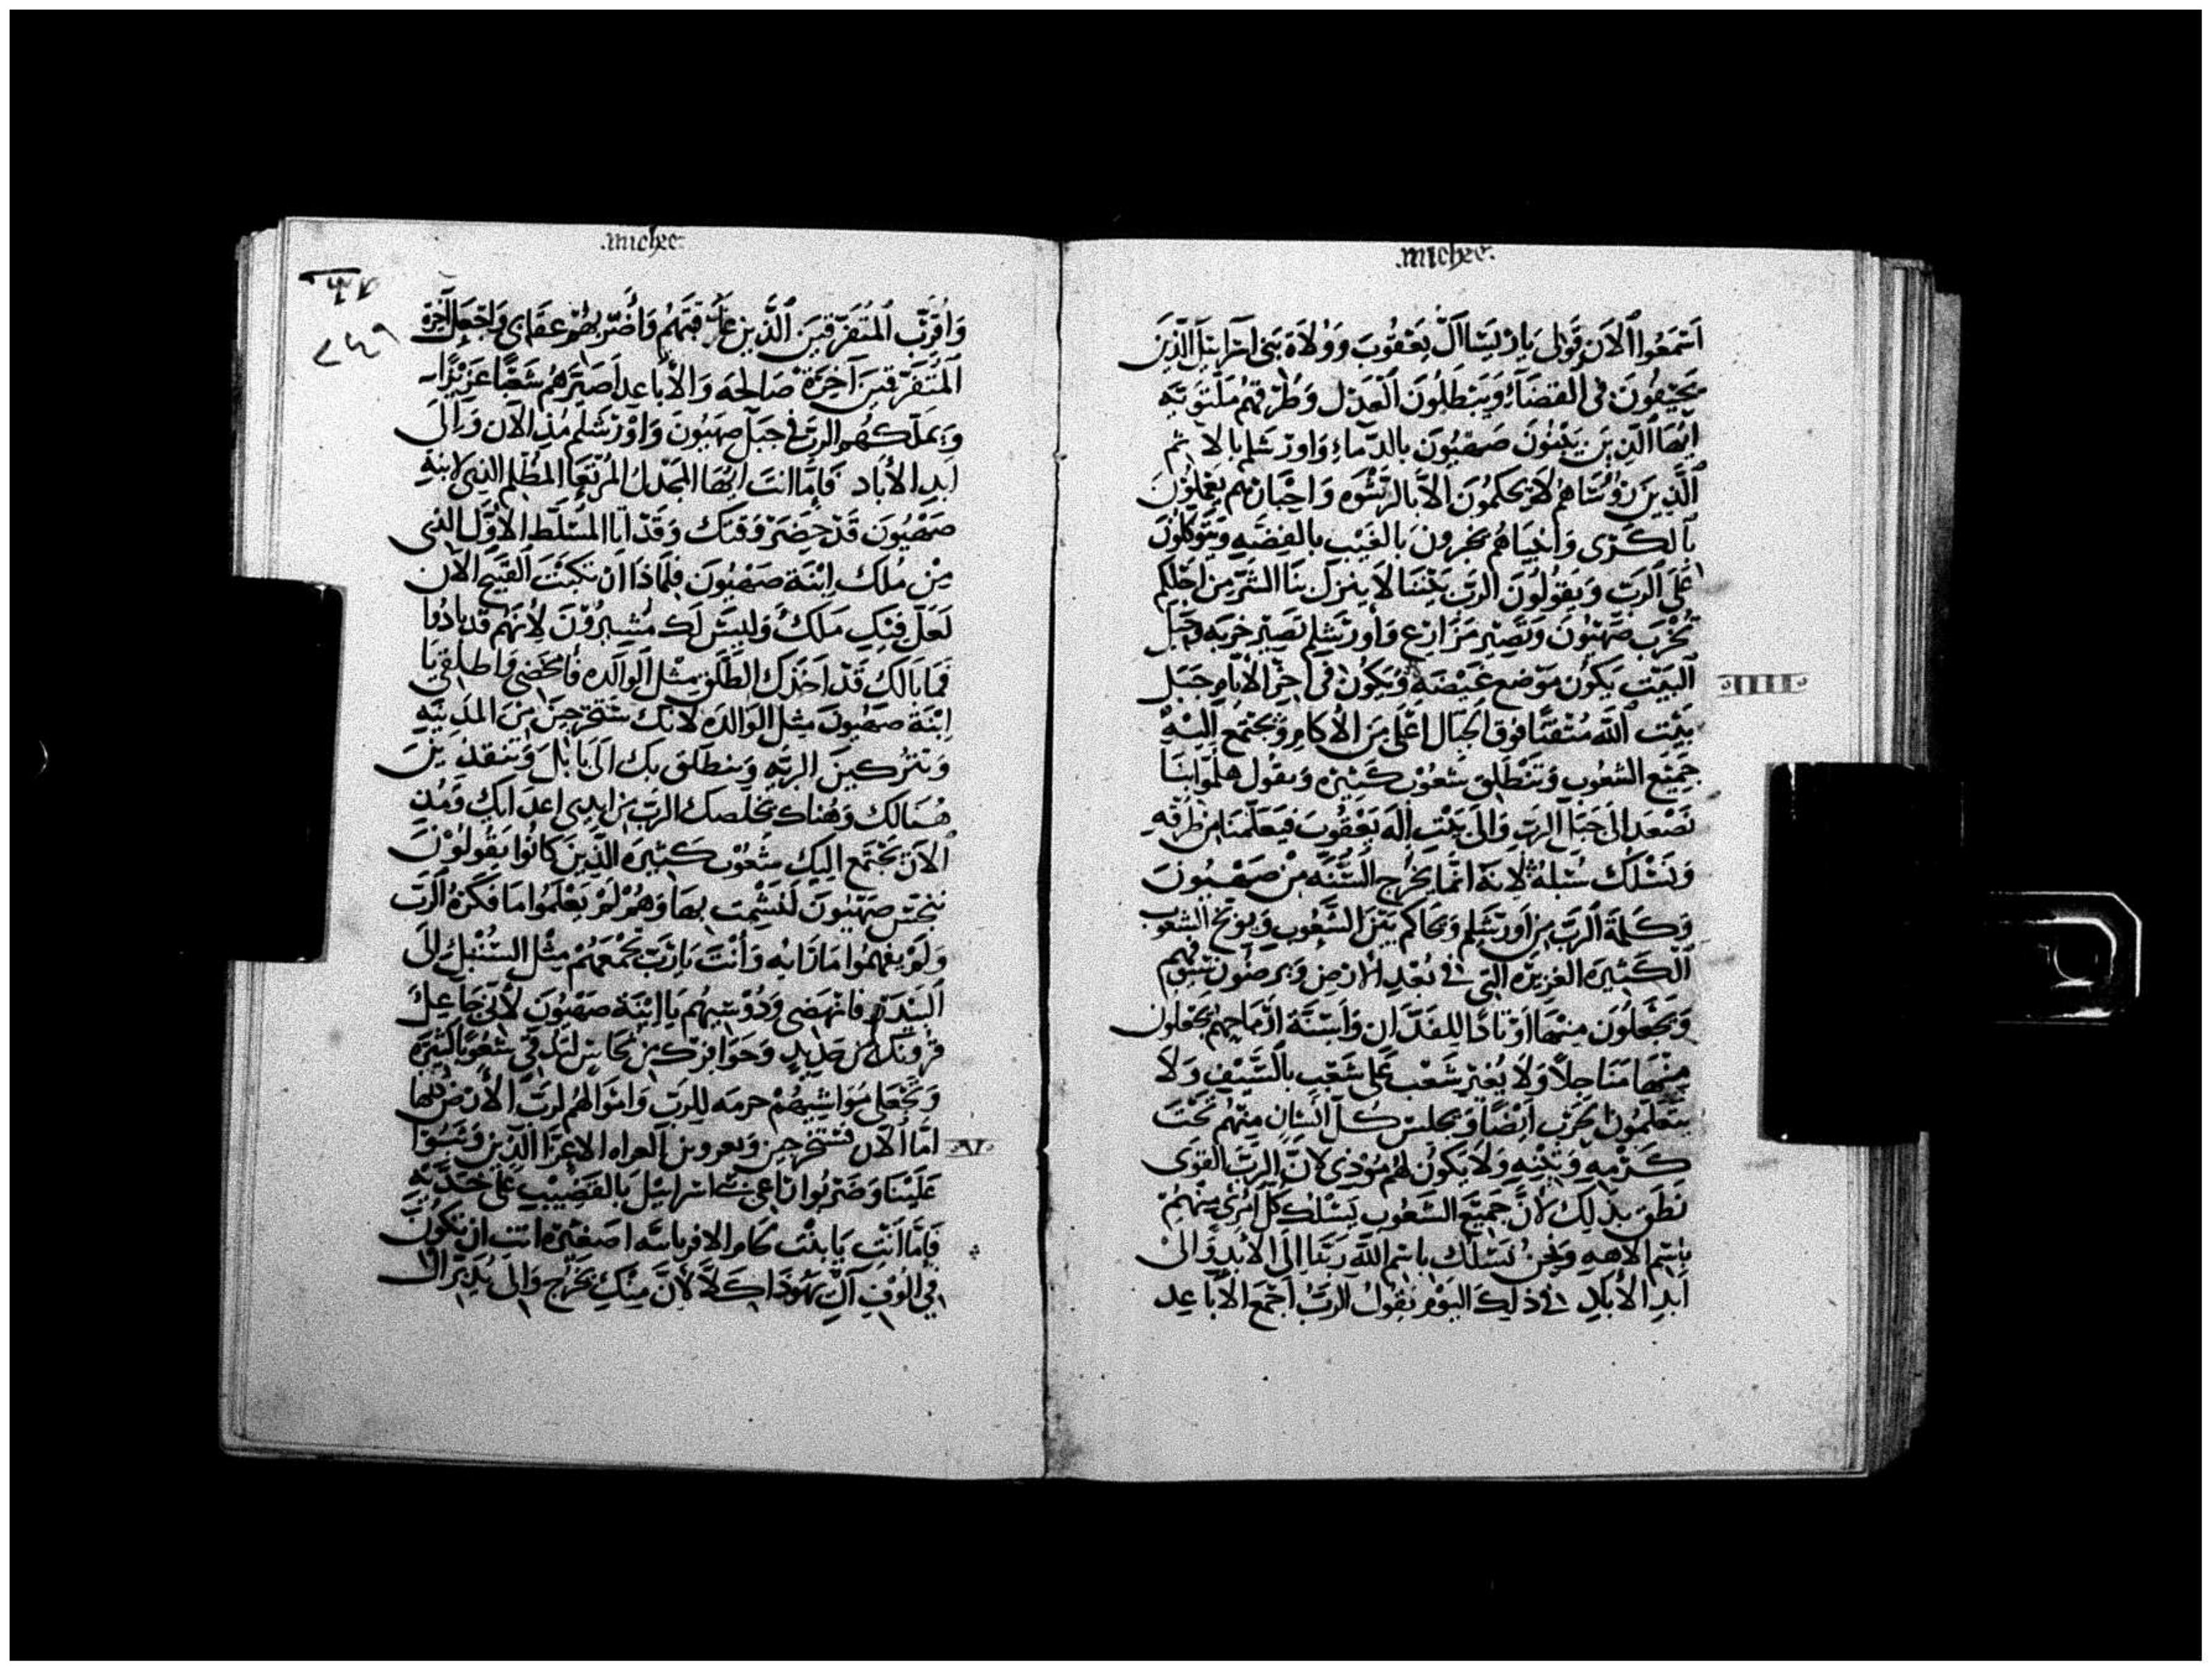 .michee.
اَسْمَعُوا الاَن قَوْلى يَا رُيَسَا اَل يَعْقُوبَ وَوُلاَة بَنى اَسرايلَ الَّذِينَ
يَحِيْفُونَ فى القضَآءِ وَيَبْطِلُونَ العَدْل وَطُرْقهُم مُلتَوِيَه
اَيُّهَا الَّذِينَ يَبْنُونَ صَهْيُونَ بالدّمَاءِ وَاورشَلم بالاثم
الَّذِينَ رُؤُسَاهُم لاَ يَحكمُونَ الاَّ بالرّشْوَه وَاحْبَارهُم يعْملُونَ
بالكَرَى وَانبياهُم يخبرونَ بالغَيْب بالفِضَه وَيتَوَكلُونَ
عَلَى الرَبّ وَيَقُولُونَ الرَبّ بَيْننَا لاَ ينزل بنَا الشَرّ مِن اجْلِكُم
تُخْرَب صَهْيُونَ وَتَصِير مَزَارع وَاورشَلِم تَصِيرْ خَربَه وَجَبَل
البَيْت يَكُون مَوْضع غَيْضَه وَيَكُون فى اخِر الايَام جَبَل
بَيْت اللّه مُتْقنًا فَوق الجِبَال اعْلى مِن الاكَام وَيجْتَمع اليْه
جَمِيْع الشعُوب وَتَنْطَلِق شعُوْب كَثِيْره وَيقول هلُمّوا بنَا
نَصْعَد الى جَبَل الرَبّ وَالى بَيْت اِلَه يَعْقُوبَ فيعَلّمنَا مِن طرقه
وَنَسْلُك سُبله لاِنه انّمَا يَخْرُج السُنَّه مِنْ صَهْيُونَ
وَكَلمَة الرَبّ مِن اورشَلِم وَيحَاكم بَيْن الشعُوب وَيوبّخ الشعُوب
الكَثِيرَه العَزِيْزَه التى فى بُعْدِ الارض وَيرضُونَ سيُوفهم
وَيَجْعلُونَ مِنْهَا اوْتادًا للِفَدّان وَاَسِنَّة ارْمَاحهُم يَجْعَلون
مِنهَا مَنَاجلاً وَلاَ يُغِيْر شَعْب عَلَى شَعْبٍ بالسَّيْف وَلاَ
يتعَلّمُونَ الحَرْب ايْضًا وَيجلس كُل انسَان مِنْهم تَحْتَ
كَرْمِه وَتِيْنِه وَلاَ يَكُونْ لهُم مُوْذى لاَنّ الرَبّ القَوى
نَطَق بذلِك لاَنَّ جَمِيْع الشعُوب يَسْلك كُل امْرى مِنْهُمْ
باِسْم الاهِهِ وَنحْنُ نَسْلُك باسْم اللّه رَبّنَا اِلَى الابَدِ وَالى
اَبَدِ الابَادِ فى ذلِكَ اليَوْم يَقُولُ الرَبُّ اجْمَع الاَباعِد
.michee.
٢٤٩
وَاُقرّب المتُفَرّقينَ الَّذِين وَاُصَيّر وَاجْعَل اَخِرَة
المتَفَرّقينَ آخِرَة صَالحَه وَالاباعد اصَيّرهُم شَعْبًا عَزِيْزًا
وَيَملّكهُم الربّ فى جَبَل صهيُونَ وَاوْرشَلم مُنذ الاَن وَاِلَى
اَبدِ الابَاد فَامَّا انتَ ايُّهَا المجْدَل المُظلم الذِى لابنَة
صَهْيُونَ قَدْ حَضَرَ وَقتك وَقَدْ اتَا المسَلّط الاوّل الذى
مِنْ مُلك ابْنَة صَهْيُونَ فَلمَاذَا اَنْ القَبِيْح الاَن
لَعَلّ فِيْكِ مَلكٌ وَلَيسَ لَكِ مُشِيرُوْنَ لاِنهُم قَد بادُوا
فَمَا بَالكِ قَدْ اخَذك الطَلق مِثْل الوَالدَه فَامْخَضِى وَاطلِقى يَا
اِبْنَة صَهْيُونَ مِثل الوَالدَه لاَنكِ سَتخرجِيْنَ مِنَ المَدِيْنَه
وَتَنْزلِينَ البريّه وَينطَلق بكِ اِلَى بَابلَ وَتَتَقدّمِيْنَ
هُنَالك وَهُنَاكَ يُخلّصك الرَبّ مِن ايدِى اعدَايك وَمُنذ
الاَن يَجْتَمع اليْك شعُوْب كَثِيْرَه الّذِينَ كانُوا يَقُولُوْنَ
نَنجّس صَهْيُونَ لنَشْمَت بهَا وَهُمْ لَمْ يَعْلَمُوا مَا فَكَرَهُ الرَبّ
وَلَمْ يَفْهَمُوا مَا رَايه وَاَنْتَ يَارَبّ تَجْمَعَهُمْ مِثْل السّنْبُل الى
البَيدَر فَانْهَضِى وَدُوْسِيْهُم يَا اِبْنَة صَهْيُونَ لاَنّى جَاعِل
قرونَك مِن حَدِيدٍ وَحَوَافرك مِن نحَاس لتَدقّى شعُوبًا كَثِيْرَه
وَتَجْعَلى مَوَاشِيْهُمْ حرمه للِرَبّ وَامْوَالهُم لِرَبّ الاَرْض كُلّهَا
امّا الاَن فَسَتخرجِيْن الاعِزّا الّذِين وَثَبُوا
عَلَيْنَا وَضَرَبُوا رَاعِى بَيْت اسرَائِيل بالقَضِيْبِ عَلى خَدّيْه
فَامّا اَنتِ يَا بَيْت كَام الافراثَه اصَغِيْره انتِ اَن تَكُونَ
فى الُوْف آل يَهُوذَا كَلاَّ لاَنَّ مِنْكِ يَخْرُج وَالى